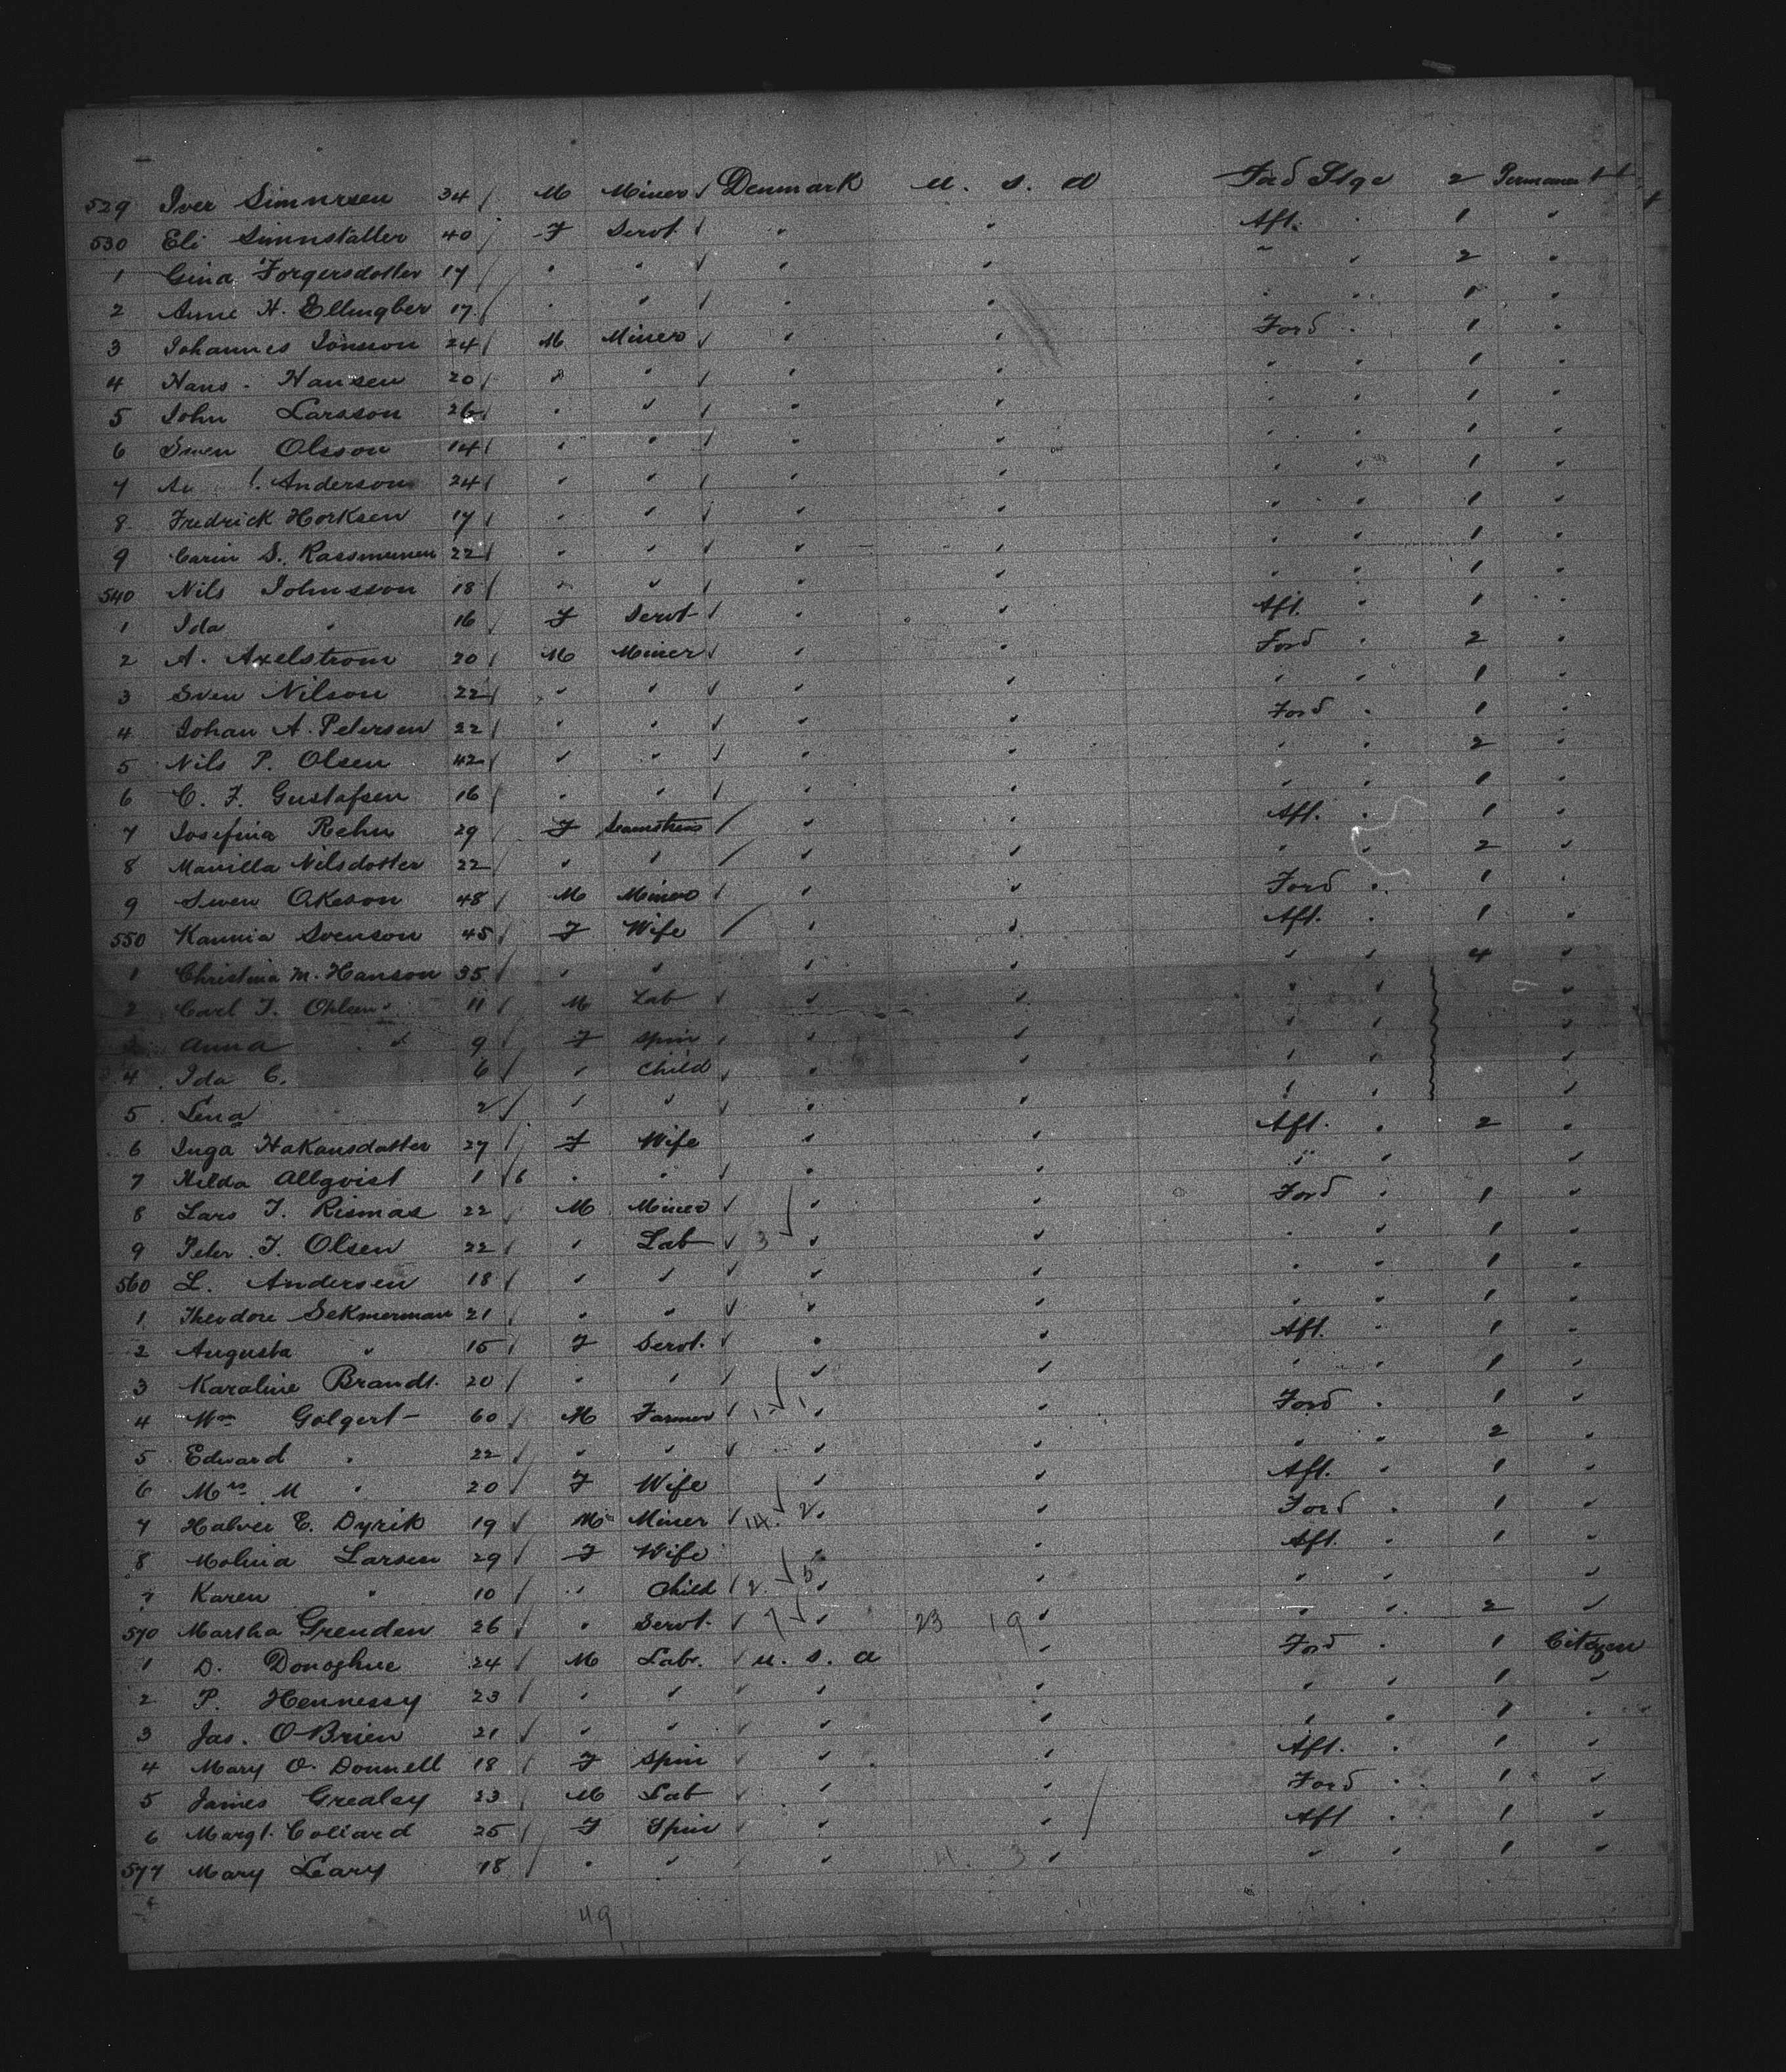 529 Iver Simnrsen 34 M Miner Denmark U. S. A Ford Stge 2 Permanent
530 Eli Simnstatter 40 F Servt. " " Aft. " 1 "
1 Gina Torgersdotter 17 " " " " " " 2 "
2 Anne H. Ellingber 17 " " " " " " 1 "
3 Johannes Jonsson 24 M Miner " " Ford " 1 "
4 Hans Hansen 20 " " " " " " 1 "
5 John Larsson 26 " " " " " " 1 "
6 Swen Olsson 14 " " " " " " 1 "
7 Anderson 24 " " " " " " 1 "
8 Fredrick Horksen 17 " " " " " " 1 "
9 Carin S. Rassmunen 22 " " " " " " 1 "
540 Nils Johnsson 18 " " " " " " 1 "
1 Ida " 16 F Servt " " Aft. " 1 "
2 A. Axelstrom 20 M Miner " " Ford " 2 "
3 Sven Nilson 22 " " " " " " 1 "
4 Johan A. Petersen 22 " " " " Ford " 1 "
5 Nils P. Olsen 42 " " " " " " 2 "
6 C. F. Gustafsen 16 " " " " " " 1 "
7 Josefina Rehn 29 F Seamstress " " Aft. " 1 "
8 Manilla Nilsdotter 22 " " " " " " 2 "
9 Swen Okeson 48 M Miner " " Ford " 1 "
550 Kannia Svenson 45 F Wife " " Aft. " 1 "
1 Christina M. Hanson 35 " " " " " " 4 "
2 Carl J. Ohlsen " 11 M Lab " " " " "
3 Anna " 9 F Spin " " " " "
4 Ida C. 6 " Child " " " " "
5 Lena 2 " " " " " " "
6 Inga Hakansdotter 27 F Wife " " Aft. " 2 "
7 Hilda Allqvist 1 6 " " " " " " "
8 Lars J. Rismas 22 M Miner " " Ford " 1 "
9 Peter J. Olsen 22 " Lab 3 " " " " 1 "
560 L. Andersen 18 " " " " " " 1 "
1 Theodore Sekmerman 21 " " " " " " 1 "
2 Augusta " 15 F Servt. " " Aft. " 1 "
3 Karaline Brandt. 20 " " " " " " 1 "
4 Wm Golgert 60 M Farmer 1 1 " " Ford " 1 "
5 Edward " 22 " " " " " " 2 "
6 Mrs M " 20 F Wife " " Aft. " 1 "
7 Halvei E. Dyrik 19 M Miner 14 2 " " Ford " 1 "
8 Molina Larsen 29 F Wife " " Aft. " 1 "
9 Karen " 10 " Child 2 5 " " " " "
570 Martha Grenden 26 " Servt. 7 " 23 19 " " " 2 "
1 D. Donoghue 24 M Labr. U. S. A " Ford " 1 Citizen
2 P. Hennessy 23 " " " " " " 1 "
3 Jas. O'Brien 21 " " " " " " 1 "
4 Mary O. Donnell 18 F Spin " " Aft. " 1 "
5 James Grealey 23 M Lab " " Ford " 1 "
6 Margt. Coliard 25 F Spin " " Aft " 1 "
577 Mary Leary 18 " " " 4 3 " " " 1 "
49